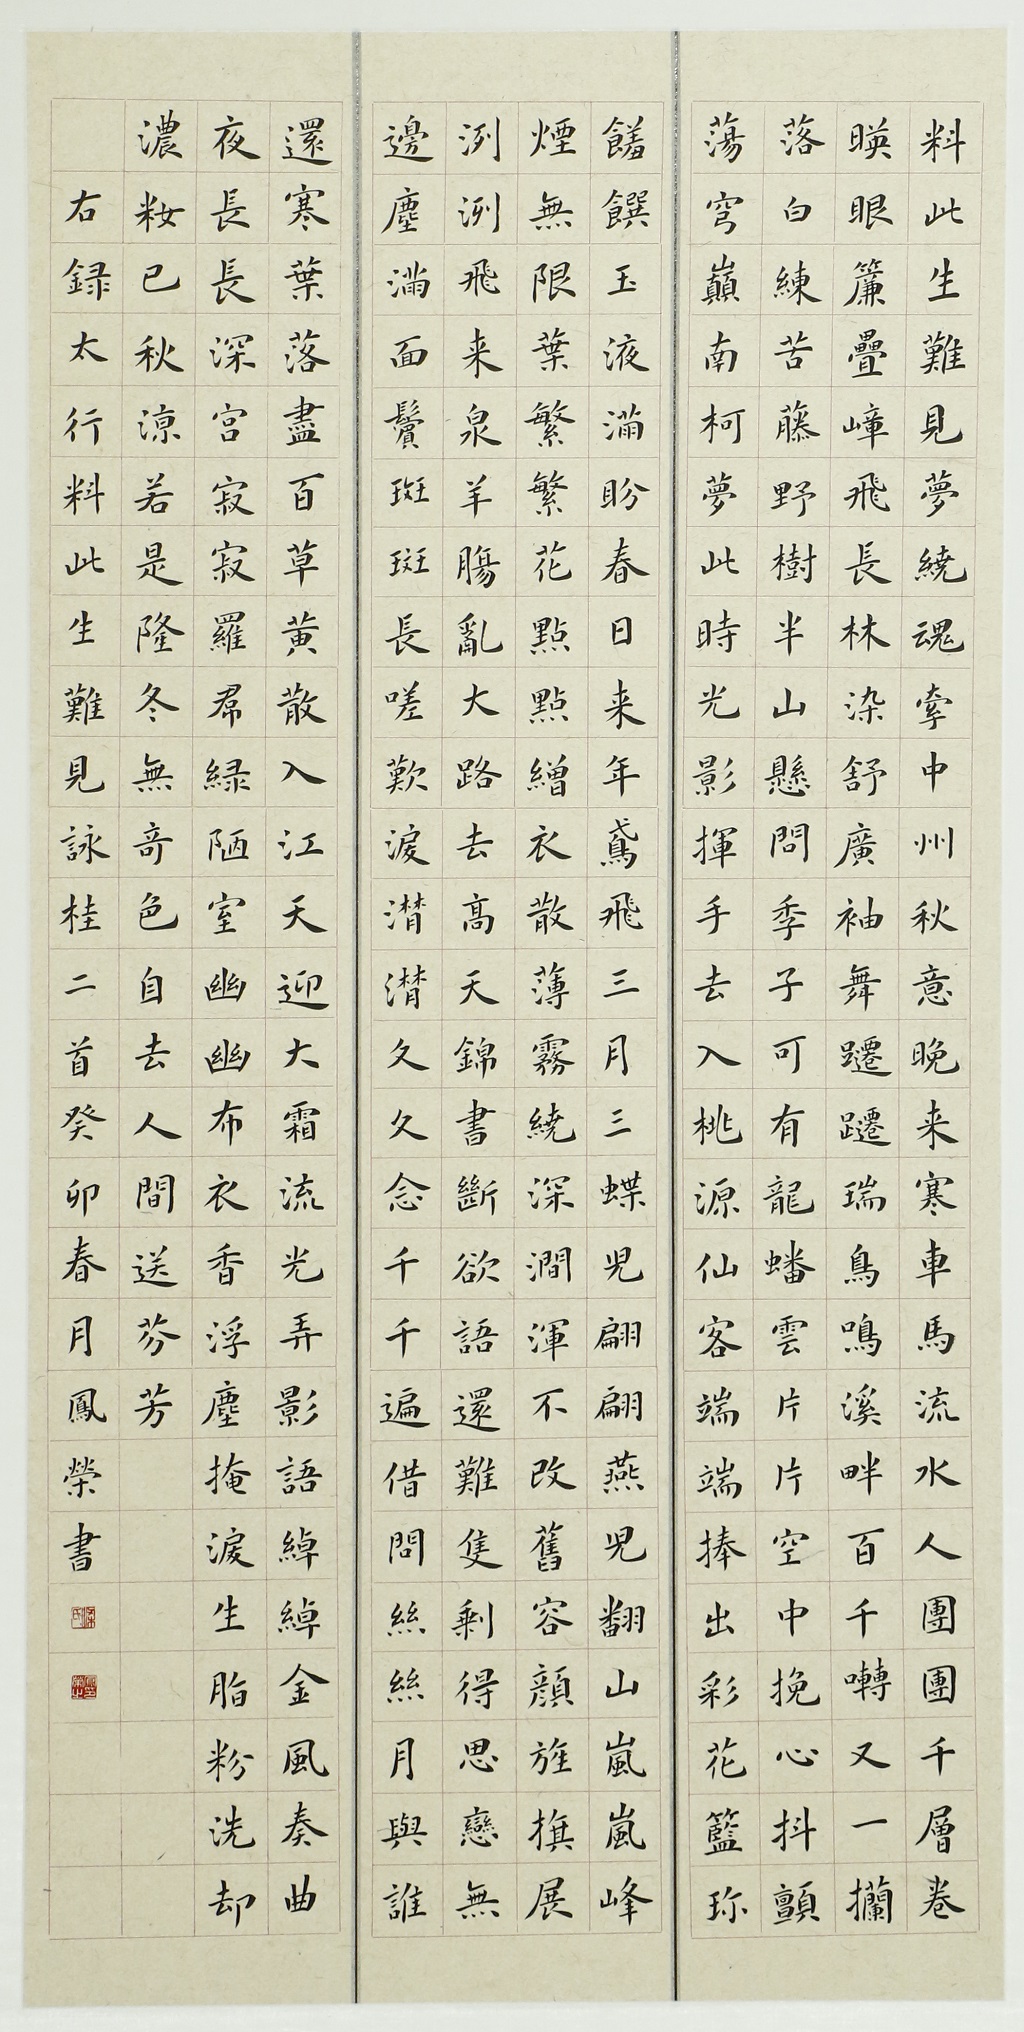 料此生難見夢繞魂牽中州秋意晚来寒車馬流水人團團千層卷
暎眼簾疊嶂飛長林染舒廣袖舞躚躚瑞鳥鳴溪畔百千囀又一攔
落白練苦藤野樹半山懸問季子可有龍蟠雲片片空中挽心抖顫
蕩穹巔南柯夢此時光影揮手去入桃源仙客端端捧出彩花籃珎
饈饌玉液滿盼春日来年鳶飛三月三蝶児翩翩燕児翻山嵐嵐峰
煙無限葉繁繁花點點繒衣散薄霧繞深澗渾不改舊容顔旌旗展
洌洌飛来泉羊腸亂大路去高天錦書斷欲語還難隻剩得思戀無
邊塵滿面鬢斑斑長嗟歎淚潸潸久久念千千遍借問絲絲月與誰
還寒葉落盡百草黄散入江天迎大霜流光弄影語綽綽金風奏曲
夜長長深宫寂寂羅帬緑陋室幽幽布衣香浮塵掩淚生脂粉洗却
濃粧已秋涼若是隆冬無奇色自去人間送芬芳
右録太行料此生難見詠桂二首癸卯春月鳳榮書